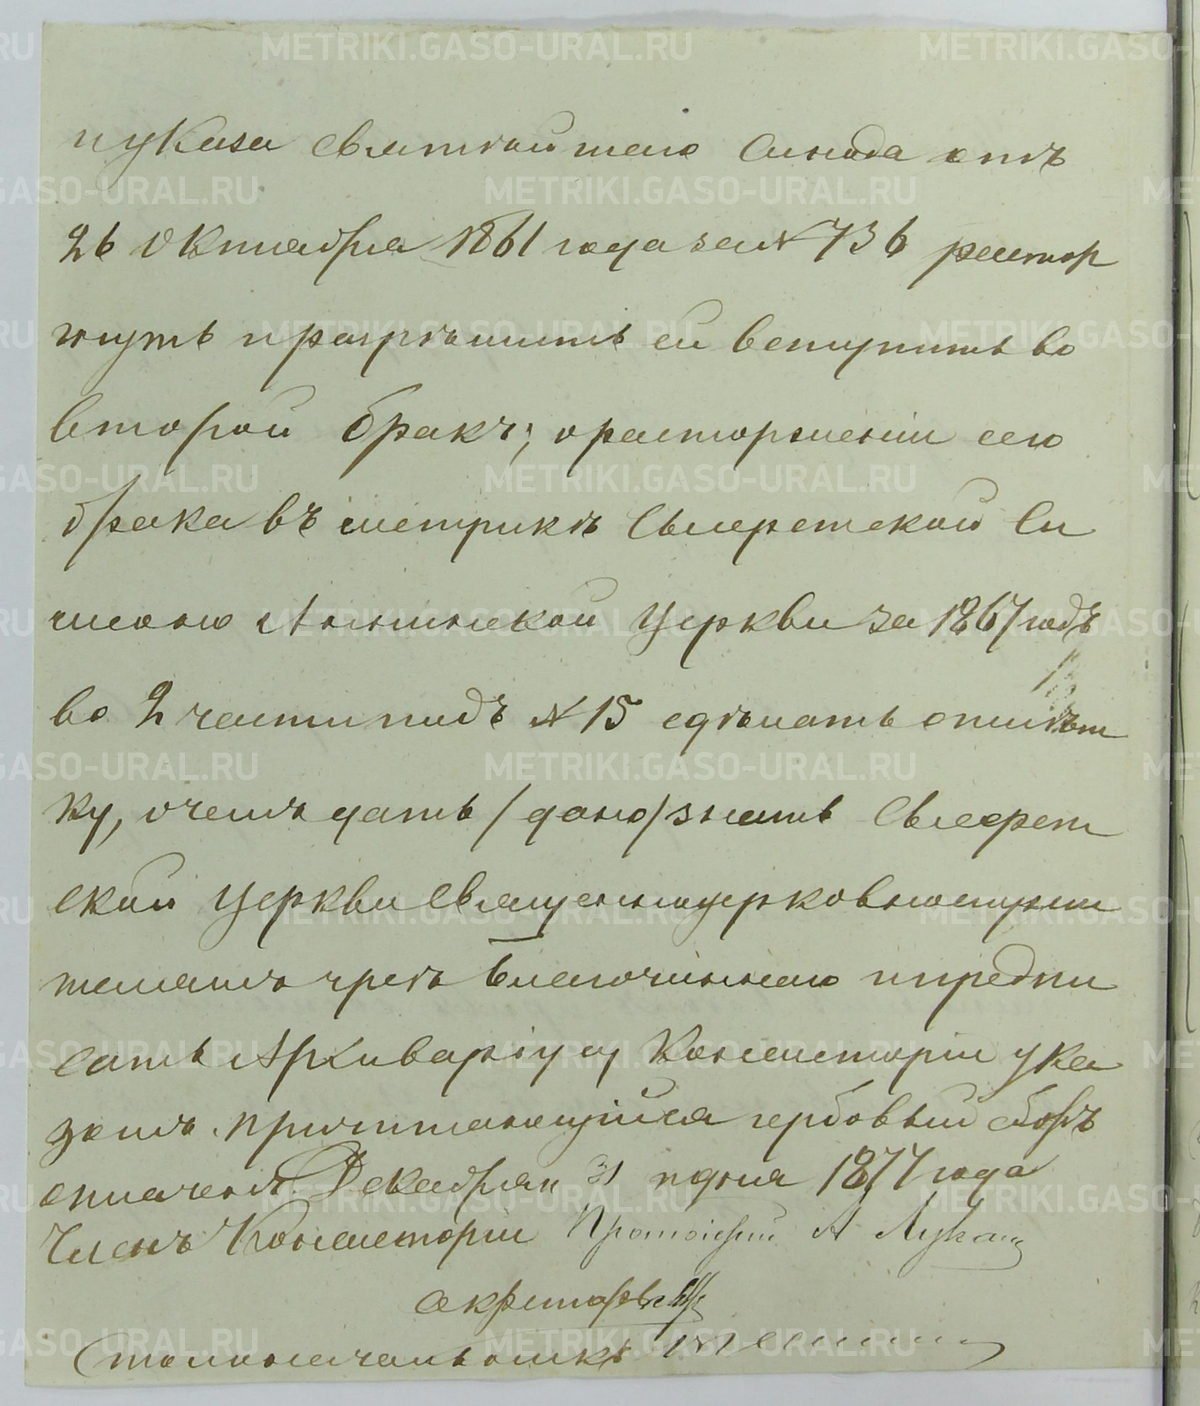 и указа Святѣйшаго Синода отъ
26 Октября 1861 года за № 736 растор
гнуть и разрѣшить ей вступить во
второй бракъ; о расторженіи сего
брака въ метрикѣ Сысертской Си
меоно Аннинской церкви за 1867 годъ
во 2 части подъ № 15 сдѣлать отмѣт
ку, о чемъ дать /дано/ знать Сысерт
ской церкви священноцерковнослужи
телямъ чрезъ Благочиннаго и предпи
сать Архиваріусу Консисторіи ука
зомъ. Причитающійся гербовый сборъ
оплаченъ. Декабря 31 дня 1877 года
Членъ Консисторіи Протоіерей А Лукан
Секретарь
Столоначальникъ
METRIKI.GASO-URAL.RU